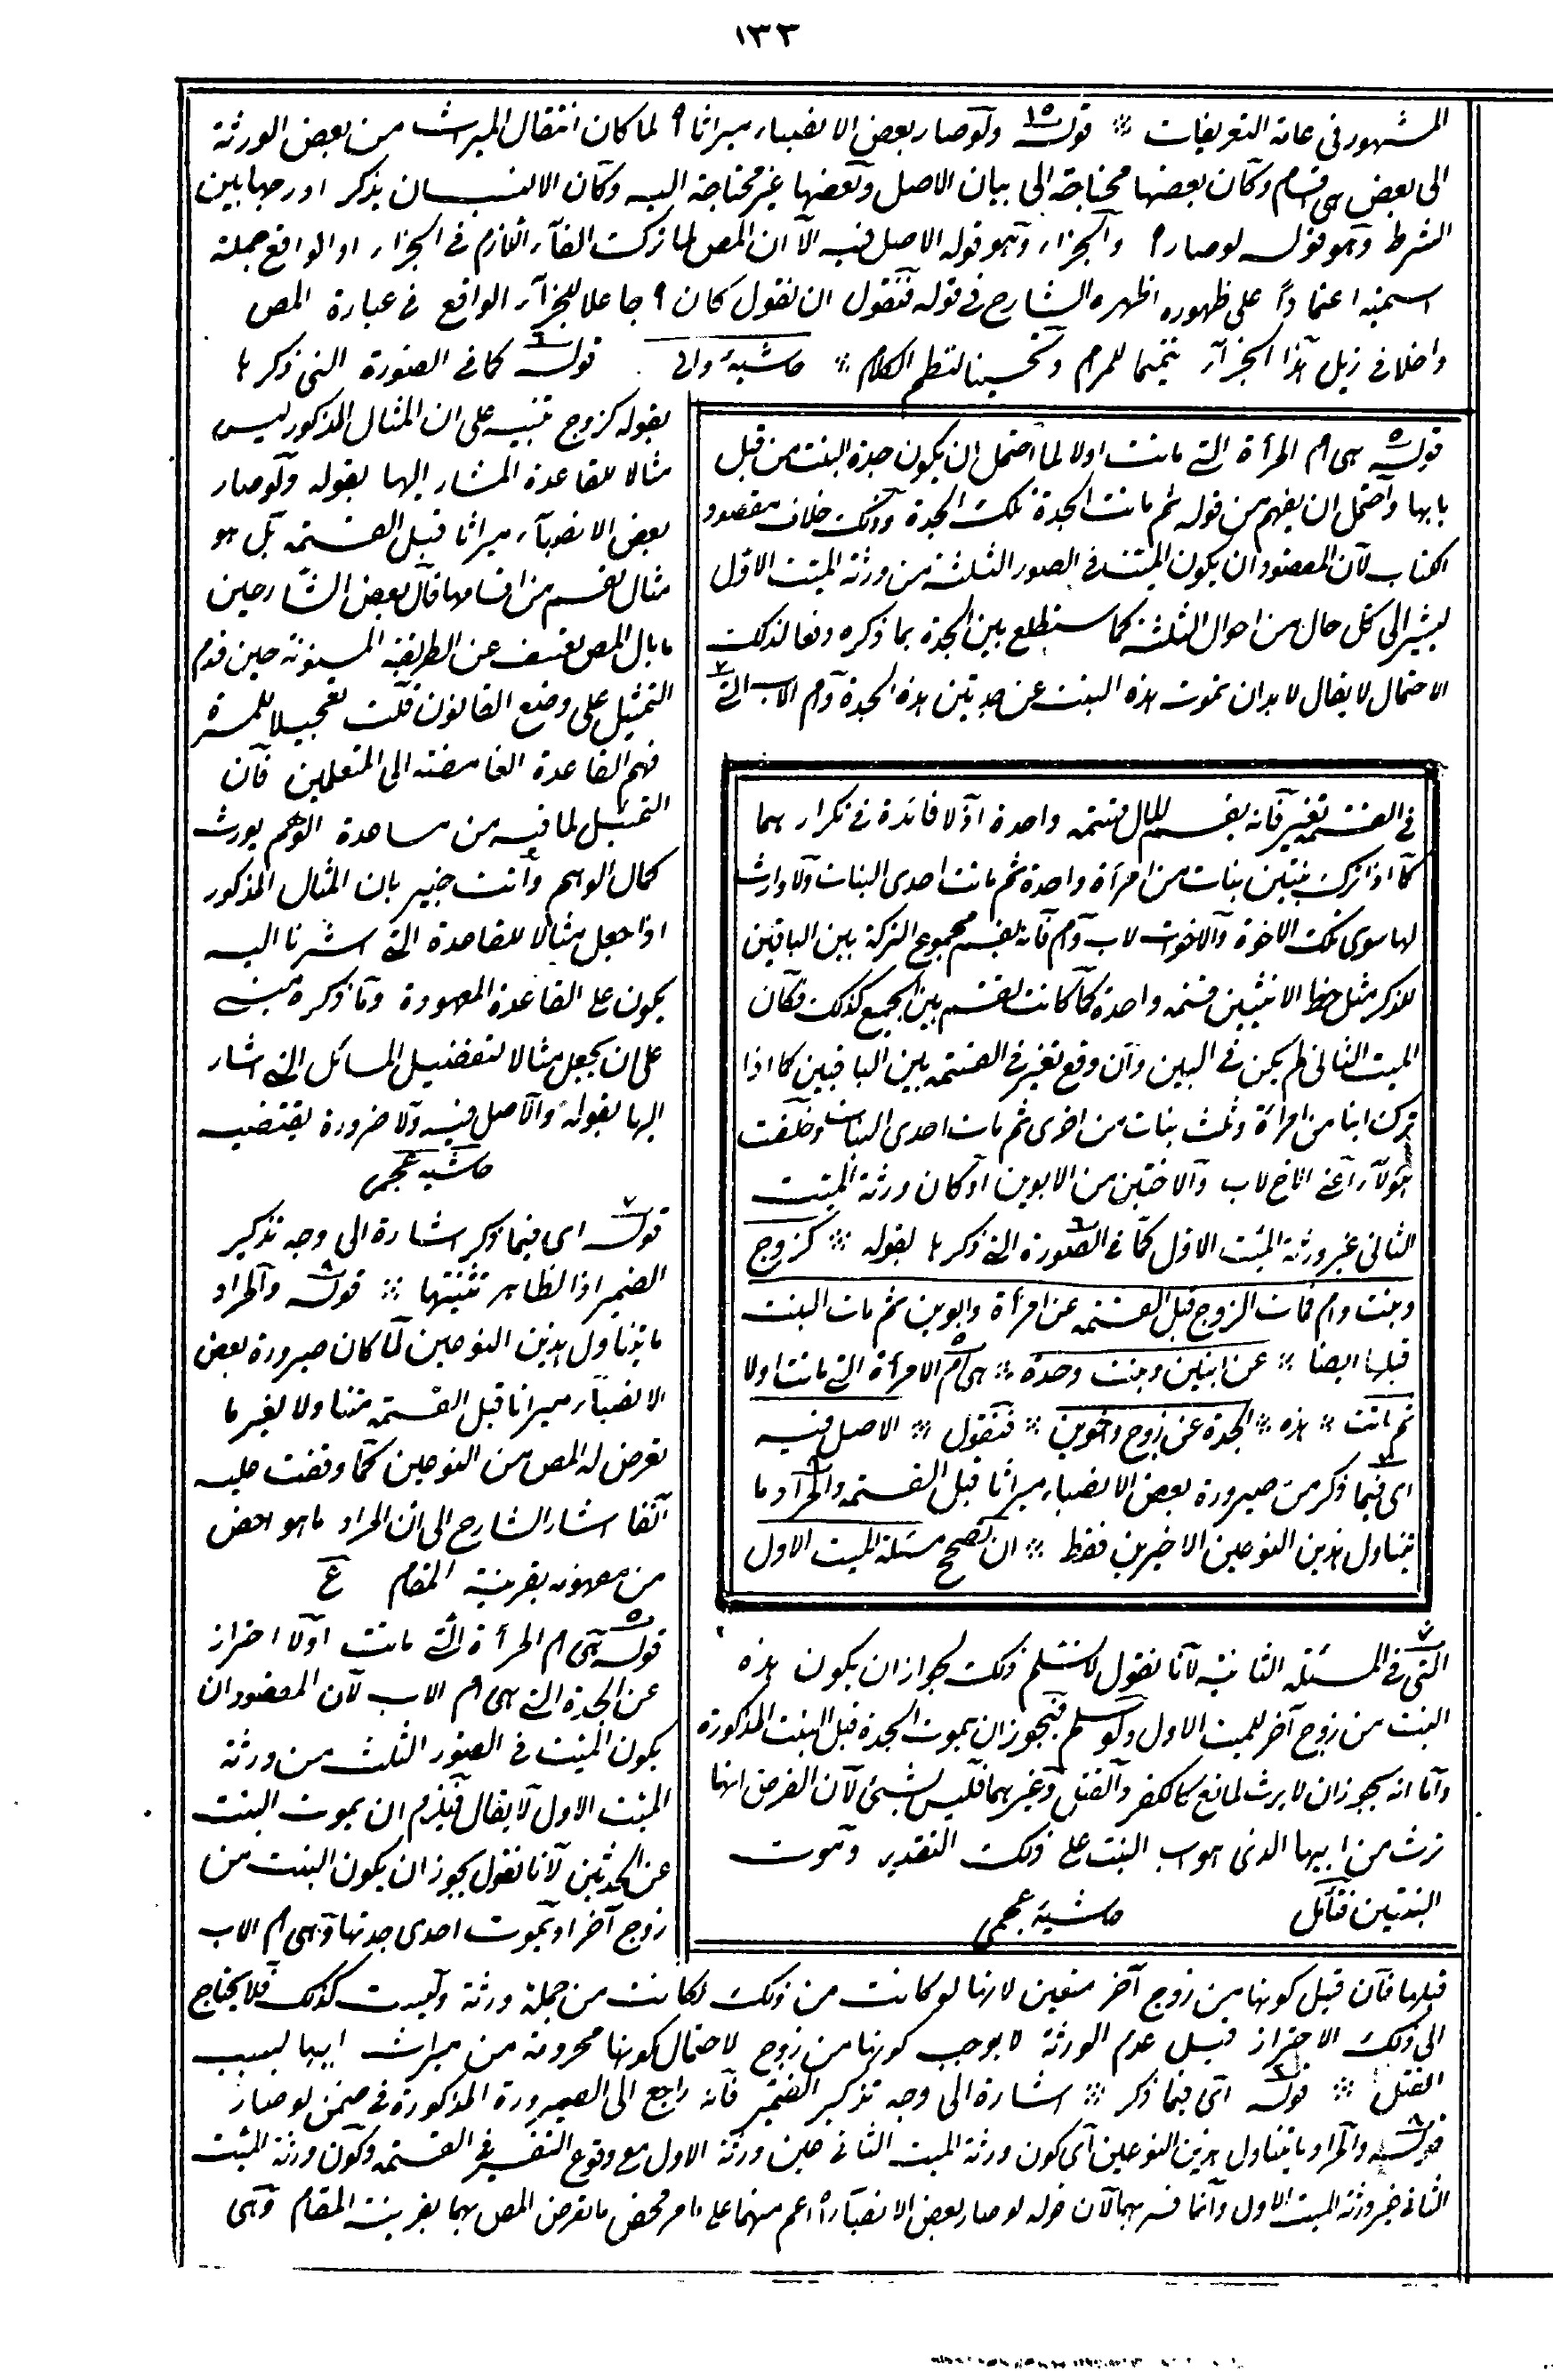 ١٣٣
المشهور فى عامة التعريفات ⁂ قوله ولو صار بعض الانصباء ميراثا ٩ لما كان انتقال الميراث من بعض الورثة
الى بعض على اقسام وكان بعضها محتاجة الى بيان الاصل وبعضها غير محتاجة اليه وكان الانسان يذكر
الشرط وهو قوله لو صار ٩ والجزاء وهو قوله الاصل فيه الا ان المص لما تركت الفاء اللازم فى الجزاء او الواقع جملة
اسمية اعتمادا على ظهوره اظهره الشارح فى قوله فنقول ان نقول كان ٩ جاعلا للجزاء الواقع فى عبارة المص
داخلا فى ذيل هذا الجزاء تتميما للمرام وتحسينا لنظم الكلام ⁂ حاشية والى
قوله كما فى الصورة التى ذكرها
بقوله كزوج تنبيه على ان المثال المذكور ليس
مثالا للقاعدة المشار اليها بقوله ولو صار
بعض الانصباء ميراثا قبل القسمة بل هو
مثال لقسم من اقسامها قال بعض الشارحين
ما بال المص تعسف عن الطريقة المسنونة حين قدم
التمثيل على وضع القانون قلت تعجيلا للمسرة
فهم القاعدة الغامضة الى المتعلمين فان
التمثيل لما فيه من مساعدة الوهم يورث
كمال الوهم وانت خبير بان المثال المذكور
اذا جعل مثالا للقاعدة التى اشرنا اليه
يكون على القاعدة المعهودة وما ذكره مبنى
على ان يجعل مثالا لتفصيل المسائل التى اشار
اليها بقوله والاصل فيه ولا ضرورة يقتضيه
حاشية عجمى
قوله اى فيما ذكر اشارة الى وجه تذكير
الضمير اذ الظاهر تثنيتها ⁂ قوله والمراد
ما يتناول هذين النوعين لما كان صيرورة بعض
الانصباء ميراثا قبل القسمة متناولا لغير ما
تعرض له المص من النوعين كما وقفت عليه
آنفا اشار الشارح الى ان المراد ما هو اخص
من مفهومه بقرينة المقام ع
قوله هى ام المرأة التى ماتت اولا احتراز
عن الجدة التى هى ام الاب لان المقصود ان
يكون الميت فى الصور الثلث من ورثة
الميت الاول لا يقال فيلزم ان يموت البنت
عن الجدتين لانا نقول يجوز ان يكون البنت من
زوج آخر او يموت احدى جدتها وهى ام الاب
قوله هى ام المرأة التى ماتت اولا لما احتمل ان يكون جدة البنت من قبل
بابها واحتمل ان يفهم من قوله ثم ماتت الجدة تلك الجدة وذلك خلاف مقصود
الكتاب لان المقصود ان يكون الميت فى الصور الثلثة من ورثة الميت الاول
ليشير الى كل حال من احوال الثلثة كما ستطلع بين الجدة بما ذكره دفعا لذلك
الاحتمال لا يقال لا بد ان تموت هذه البنت عن جدتين هذه الجدة وام الاب التى
فى القسمة تغير فانه يقسم المال قسمة واحدة اذ لا فائدة فى تكرارها
كما اذا ترك بنين وبنات من امرأة واحدة ثم ماتت احدى البنات ولا وارث
لها سوى تلك الاخوة والاخوات لاب وام فانه يقسم مجموع التركة بين الباقين
للذكر مثل حظ الانثيين قسمة واحدة كما كانت تقسم بين الجميع كذلك فكان
الميت الثانى لم يكن فى البين وان وقع تغير فى القسمة بين الباقين كما اذا
ترك ابنا من امرأة وثلث بنات من اخرى ثم مات احدى البنات وخلفت
هؤلاء اعنى الاخ لاب والاختين من الابوين او كان ورثة الميت
الثانى غير ورثة الميت الاول كما فى الصورة التى ذكرها بقوله ⁂ كزوج
وبنت وام فمات الزوج قبل القسمة عن امرأة وابوين ثم مات البنت
قبلها ايضا ⁂ عن ابنين وبنت وجدة ⁂ هى ام الامرأة التى ماتت اولا
ثم ماتت ⁂ هذه ⁂ الجدة عن زوج واخوين ⁂ فنقول ⁂ الاصل فيه
اى فيما ذكر من صيرورة بعض الانصباء ميراثا قبل القسمة والمراد ما
يتناول هذين النوعين الاخيرين فقط ⁂ ان تصحح مسئلة الميت الاول
التى فى المسئلة الثانية لانا نقول لا نسلم ذلك لجواز ان يكون هذه
البنت من زوج آخر للميت الاول ولو سلم فيجوز ان يموت الجدة قبل البنت المذكورة
واما انه يجوز ان لا يرث لمانع كالكفر والقتل وغيرهما فليس بشئ لان الفرض انها
ترث من ابيها الذى هو اب البنت على ذلك التقدير وموت
البنتين فتأمل حاشية عجمى
قبلها فان قيل كونها من زوج آخر متعين لانها لو كانت من ذلك لكانت من جملة ورثة وليست كذلك فلا يحتاج
الى ذلك الاحتراز قيل عدم الورثة لا يوجب كونها من زوج لاحتمال كونها محرومة من ميراث ابيها لسبب
القتل ⁂ قوله اى فيما ذكر ⁂ اشارة الى وجه تذكير الضمير فانه راجع الى الصيرورة المذكورة فى ضمن لو صار
قوله والمراد ما يتناول هذين النوعين اى كون ورثة الميت الثانى عين ورثة الاول مع وقوع التغير فى القسمة وكون ورثة الميت
الثانى غير ورثة الميت الاول وانما فسر بهما لان قوله لو صار بعض الانصباء اعم منهما على ما تعرض المص بهما بقرينة المقام وهى